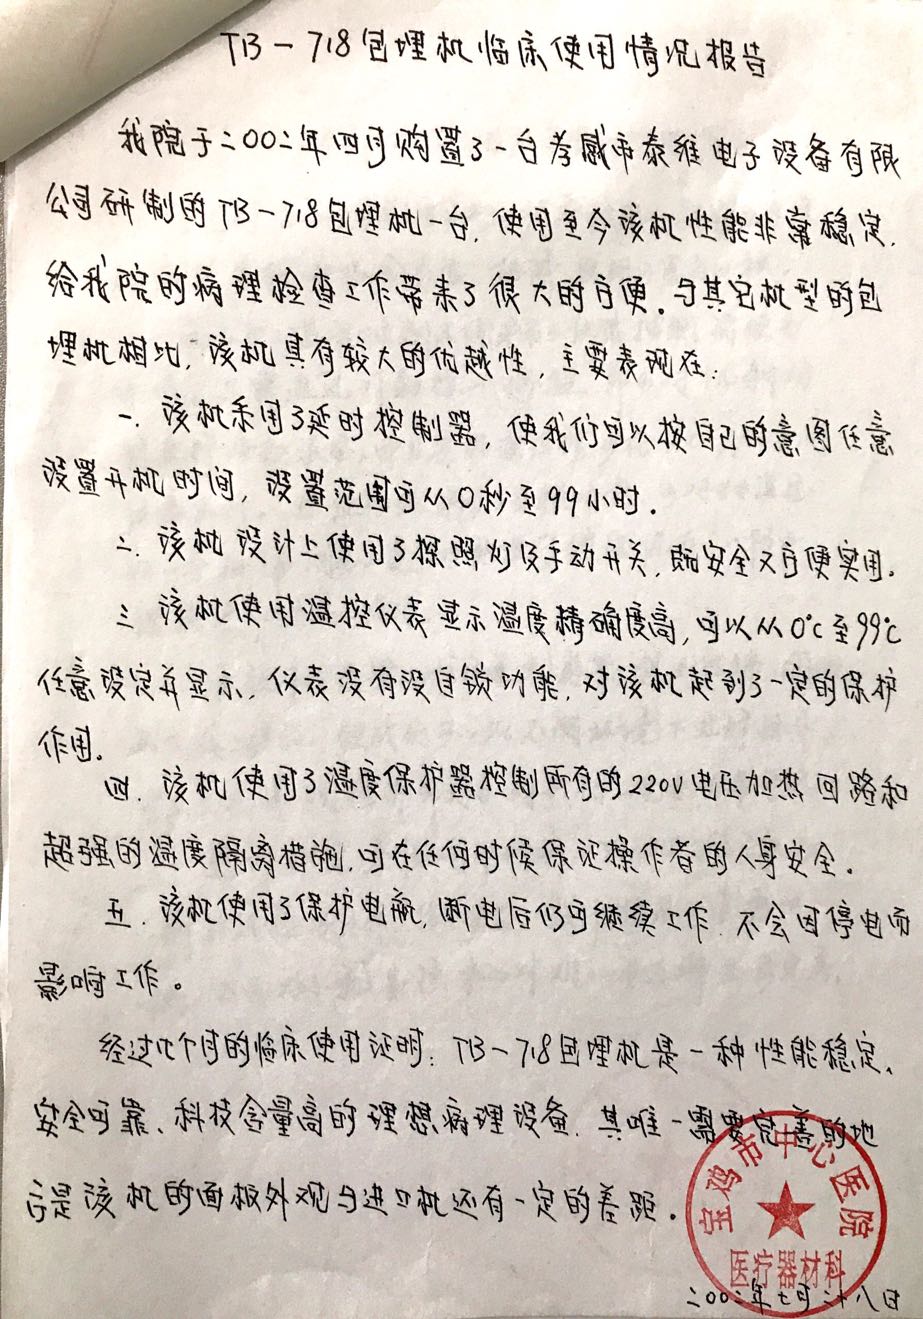 TB-718包埋机临床使用情况报告
我院于二00二年四月购置了一台孝感市泰维电子设备有限
公司研制的TB-718包埋机一台，使用至今该机性能非常稳定，
给我院的病理检查工作带来了很大的方便。与其它机型的包
埋机相比，该机具有较大的优越性，主要表现在：
一、该机采用了延时控制器，使我们可以按自己的意图任意
设置开机时间，设置范围可从0秒至99小时。
二、该机设计上使用了探照灯及手动开关，既安全又方便实用。
三、该机使用温控仪表显示温度精确度高，可以从0℃至99℃
任意设定并显示，仪表没有设自锁功能，对该机起到了一定的保护
作用。
四、该机使用了温度保护器控制所有的220V电压加热回路和
超强的温度隔离措施，可在任何时候保证操作者的人身安全。
五、该机使用了保护电瓶，断电后仍可继续工作，不会因停电而
影响工作。
经过几个月的临床使用证明：TB-718包埋机是一种性能稳定、
安全可靠、科技含量高的理想病理设备，其唯一需要完善的地
方是该机的面板外观与进口机还有一定的差距。
宝鸡市中心医院
医疗器材科
二00二年七月二十八日